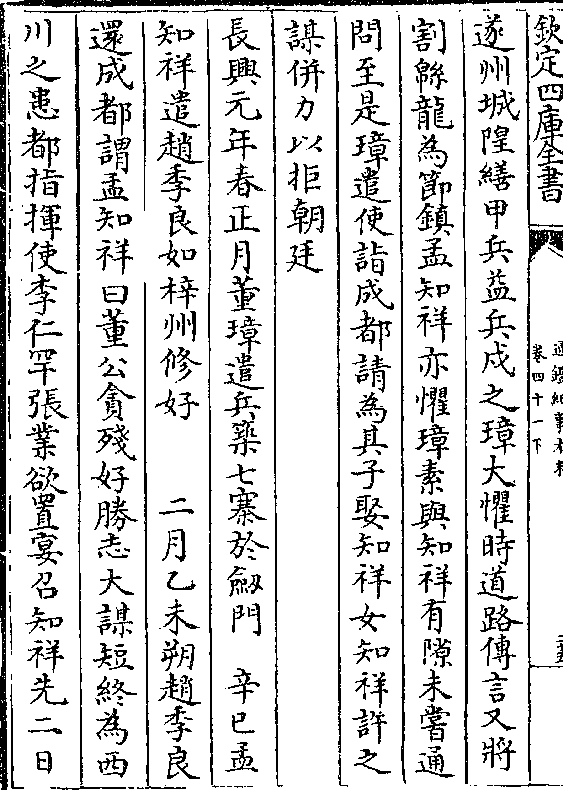 欽定四庫全書
通鑑紀事本末
卷四十一下
遂州城隍繕甲兵益兵戍之璋大懼時道路傳言又將
割緜龍為節鎮孟知祥亦懼璋素與知祥有隙未嘗通
問至是璋遣使詣成都請為其子娶知祥女知祥許之
謀併力以拒朝廷
長興元年春正月董璋遣兵築七寨於劔門　辛巳孟
知祥遣趙季良如梓州修好　二月乙未朔趙季良
還成都謂孟知祥曰董公貪殘好勝志大謀短終為西
川之患都指揮使李仁罕張業欲置宴召知祥先二日